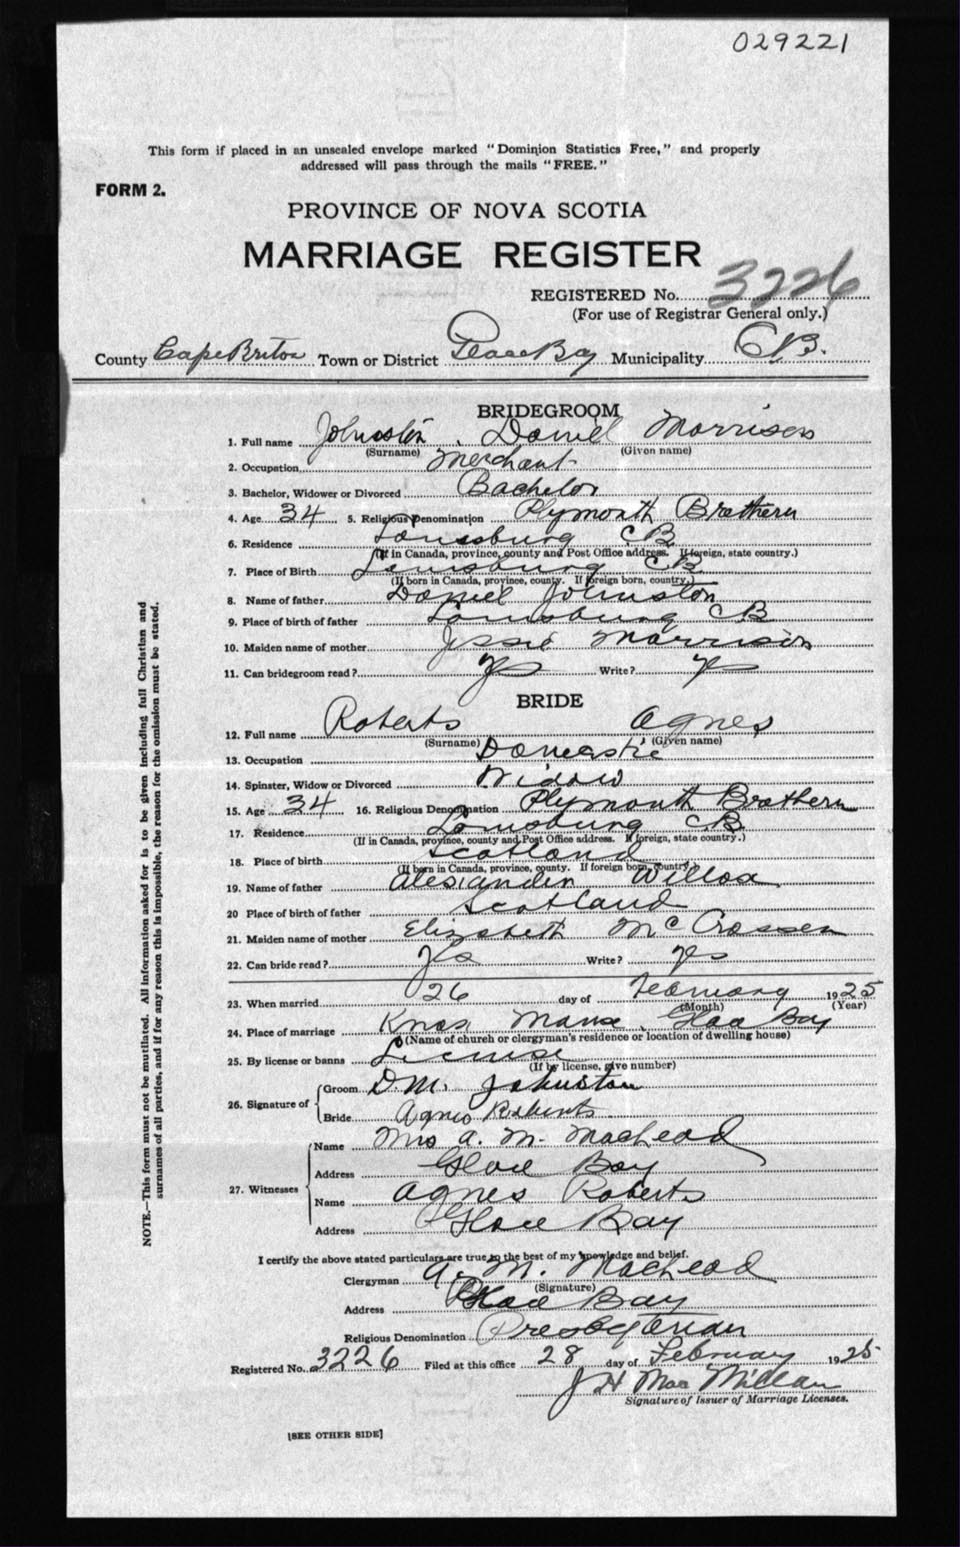 029221
This form if placed in an unsealed envelope marked "Dominion Statistics Free," and properly
addressed will pass through the mails "FREE."
FORM 2.
PROVINCE OF NOVA SCOTIA
MARRIAGE REGISTER
REGISTERED No. 3226
(For use of Registrar General only.)
County Cape Breton Town or District Glace Bay Municipality C B.
BRIDEGROOM
1. Full name Johnston, Daniel Morrison
(Surname) (Given name)
2. Occupation Merchant
3. Bachelor, Widower or Divorced Bachelor
4. Age 34 5. Religious Denomination Plymouth Brethern
6. Residence Louisburg C B
(If in Canada, province, county and Post Office address. If foreign, state country.)
7. Place of Birth Louisburg C B
(If born in Canada, province, county. If foreign born, country.)
8. Name of father Daniel Johnston
9. Place of birth of father Louisburg C B
10. Maiden name of mother Jessie Morrison
11. Can bridegroom read? Yes Write? Yes
BRIDE
12. Full name Roberts Agnes
(Surname) (Given name)
13. Occupation Domestic
14. Spinster, Widow or Divorced Widow
15. Age 34 16. Religious Denomination Plymouth Brothern
17. Residence Louisburg C B
(If in Canada, province, county and Post Office address. If foreign, state country.)
18. Place of birth Scotland
(If born in Canada, province, county. If foreign born, country.)
19. Name of father Alexander Willox
20 Place of birth of father Scotland
21. Maiden name of mother Elizabeth McCrossen
22. Can bride read? Yes Write? Yes
23. When married 26 day of February 1925
(Month) (Year)
24. Place of marriage Knox Manse, Glace Bay
(Name of church or clergyman's residence or location of dwelling house)
25. By license or banns License
(If by license, give number)
26. Signature of Groom D.M. Johnston
Bride Agnes Roberts
27. Witnesses Name Mrs A. M. MacLeod
Address Glace Bay
Name Agnes Roberts
Address Glace Bay
I certify the above stated particulars are true to the best of my knowledge and belief.
Clergyman A. M. MacLeod
(Signature)
Address Glace Bay
Religious Denomination Presbyterian
Registered No. 3226 Filed at this office 28 day of February 1925
J H Mac Millan
Signature of Issuer of Marriage Licenses.
[SEE OTHER SIDE]
NOTE.—This form must not be mutilated. All information asked for is to be given including full Christian and
surnames of all parties, and if for any reason this is impossible, the reason for the omission must be stated.